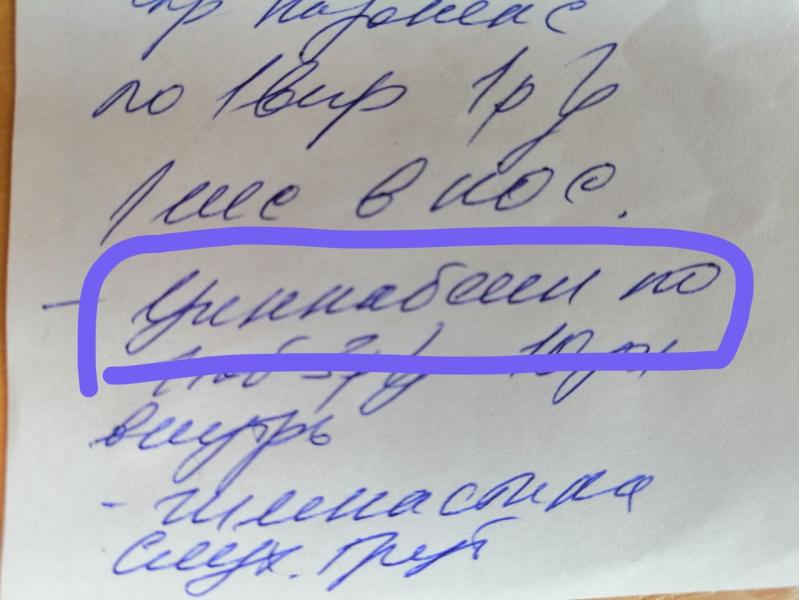 по 1 впр 1р/д
1 мес в нос.
- Циннабсин по
1 таб 3р/д 10 дн
внутрь
- гимнастика
слух. труб